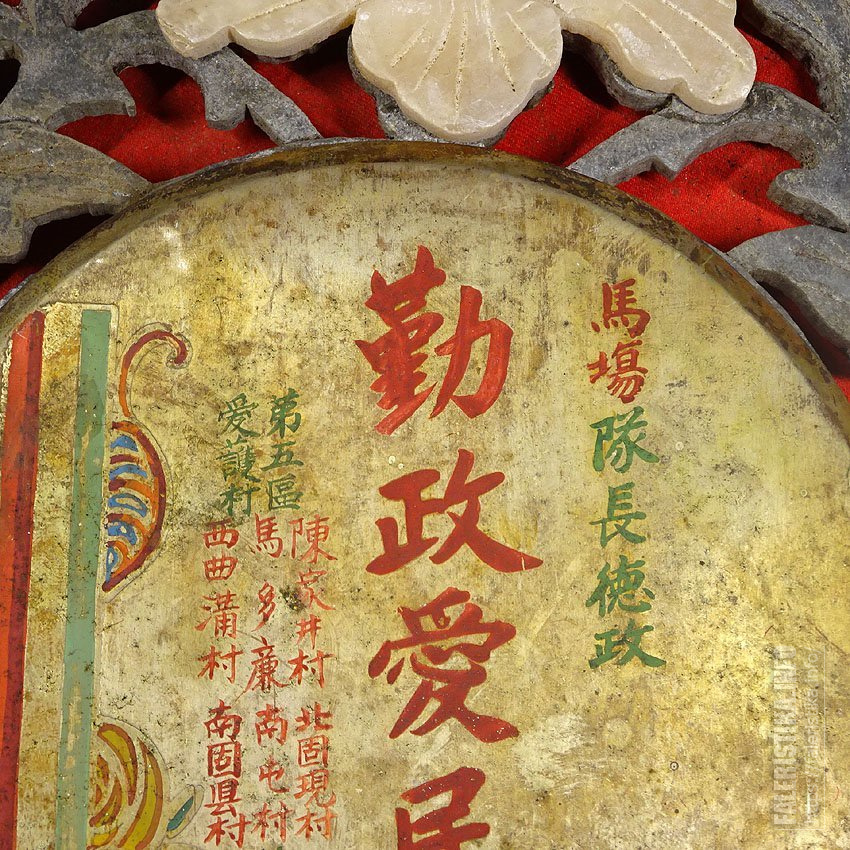 馬場隊長徳政
勤政愛民
第五區
愛護村
陳家井村 北固現村
馬多廉南屯村
西曲溝村 南固県村
FALERISTIKA.INFO